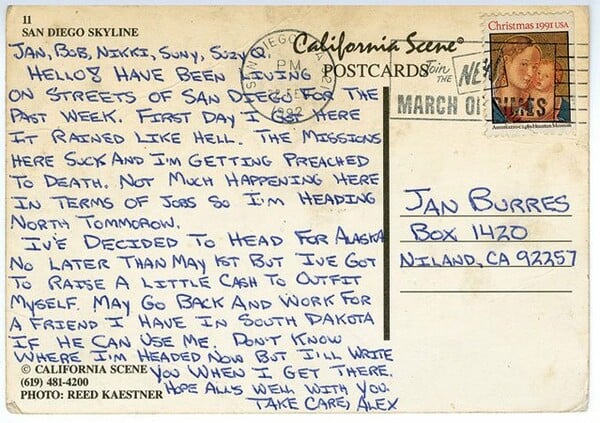 11
SAN DIEGO SKYLINE
JAN, BOB, NIKKI, SUNY, SUZY Q.
HELLO! HAVE BEEN LIVING
ON STREETS OF SAN DIEGO FOR THE
PAST WEEK. FIRST DAY I GOT HERE
IT RAINED LIKE HELL. THE MISSIONS
HERE SUCK AND I'M GETTING PREACHED
TO DEATH. NOT MUCH HAPPENING HERE
IN TERMS OF JOBS SO I'M HEADING
NORTH TOMMOROW.
IV'E DECIDED TO HEAD FOR ALASKA
NO LATER THAN MAY 1ST BUT I'VE GOT
TO RAISE A LITTLE CASH TO OUTFIT
MYSELF. MAY GO BACK AND WORK FOR
A FRIEND I HAVE IN SOUTH DAKOTA
IF HE CAN USE ME. DON'T KNOW
WHERE I'M HEADED NOW BUT I'LL WRITE
YOU WHEN I GET THERE.
HOPE ALLS WELL WITH YOU.
TAKE CARE, ALEX
© CALIFORNIA SCENE
(619) 481-4200
PHOTO: REED KAESTNER
California Scene®
POSTCARDS
SAN DIEGO
PM
1992
Join
THE
MARCH OF DIMES
Christmas 1991 USA
JAN BURRES
BOX 1420
NILAND, CA 92257